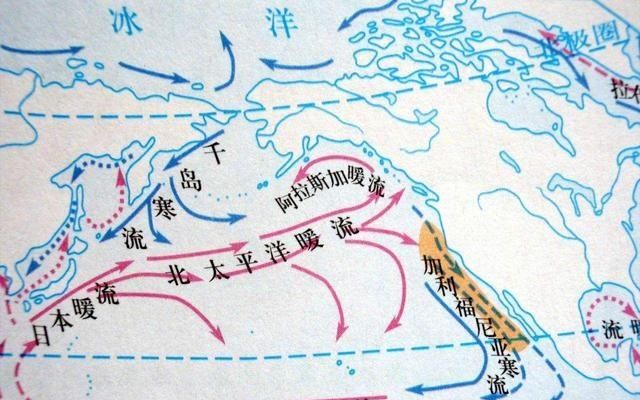 冰 洋
北极圈
千岛寒流
阿拉斯加暖流
北太平洋暖流
日本暖流
加利福尼亚寒流
拉
流